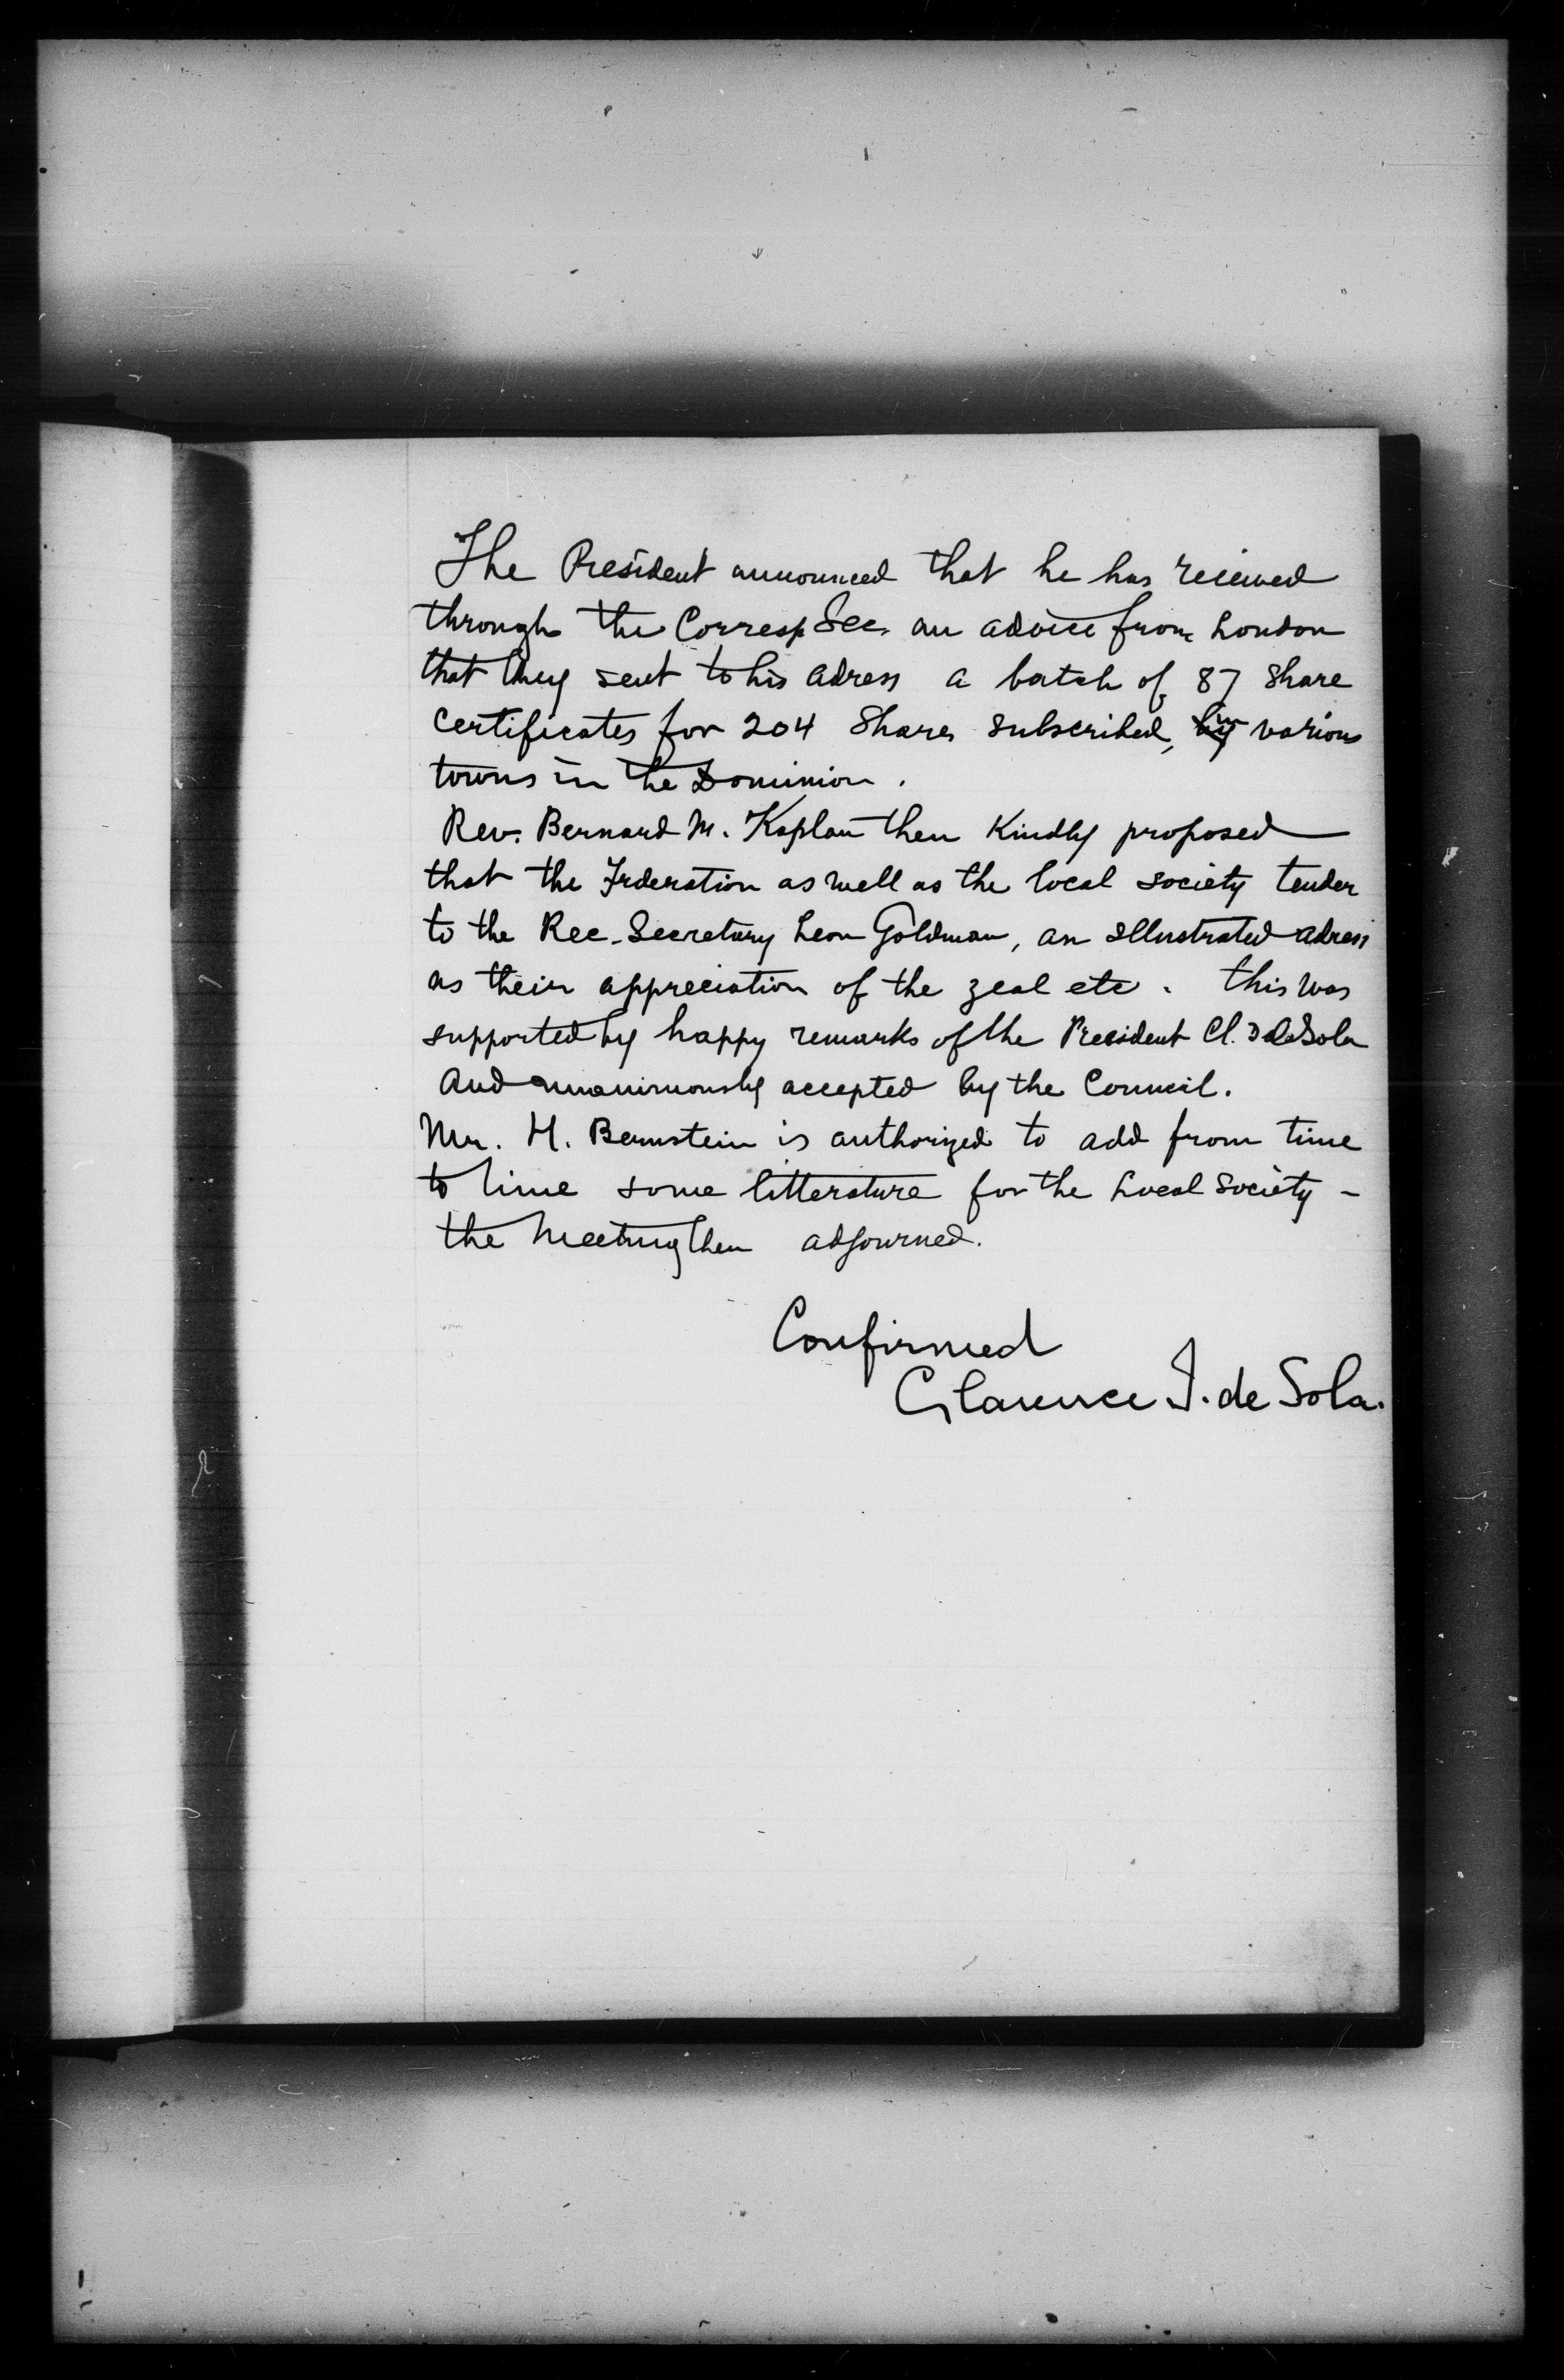 The President announced that he has recieved
through the Corresp Sec. an advice from London
that they sent to his adress a batch of 87 Share
Certificates for 204 Shares subscribed, in various
towns in the Dominion.
Rev. Bernard M. Kaplan then Kindly proposed
that the Federation as well as the local society tender
to the Rec. Secretary Leon Goldman, an illustrated adress
as their appreciation of the zeal etc. this was
supported by happy remarks of the President Cl. I deSola
and unanimously accepted by the Council.
Mr. H. Bernstein is authorized to add from time
to time some litterature for the Local Society -
the Meeting then adjourned.
Confirmed
Clarence I. de Sola.